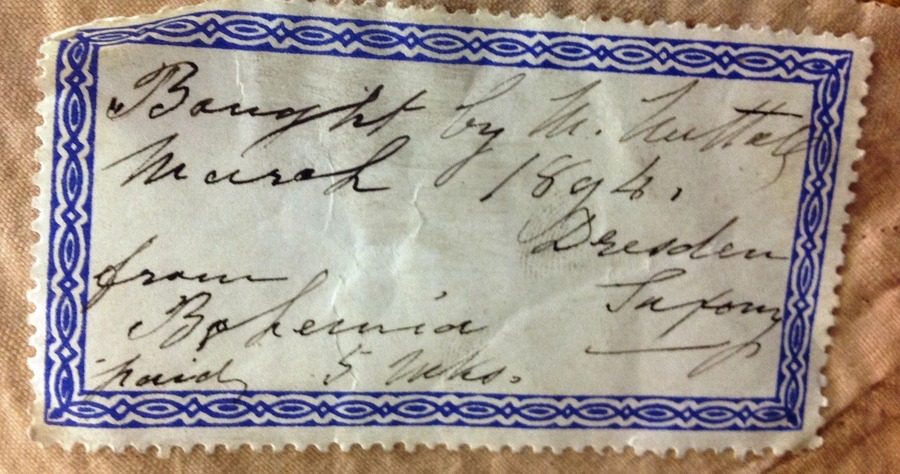 Bought by M. Nuttall
March 1894.
Dresden
Saxony
from
Bohemia
paid 5 Mks.